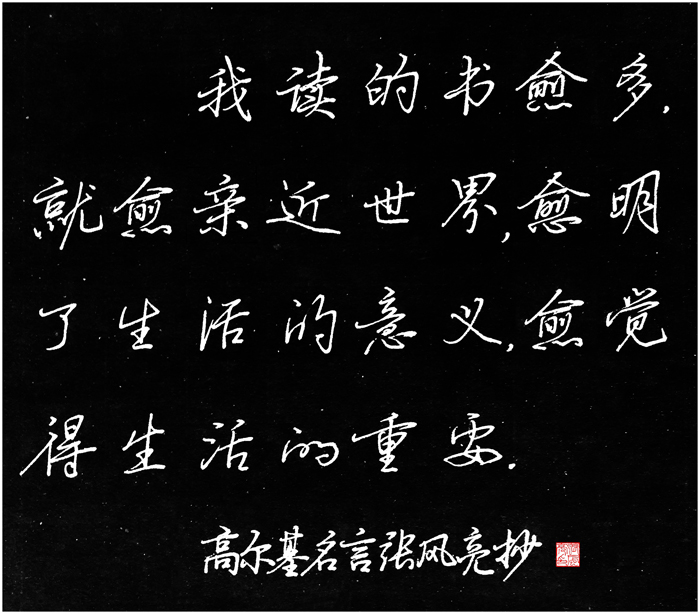 我读的书愈多，
就愈亲近世界，愈明
了生活的意义，愈觉
得生活的重要。
高尔基名言张风亮抄